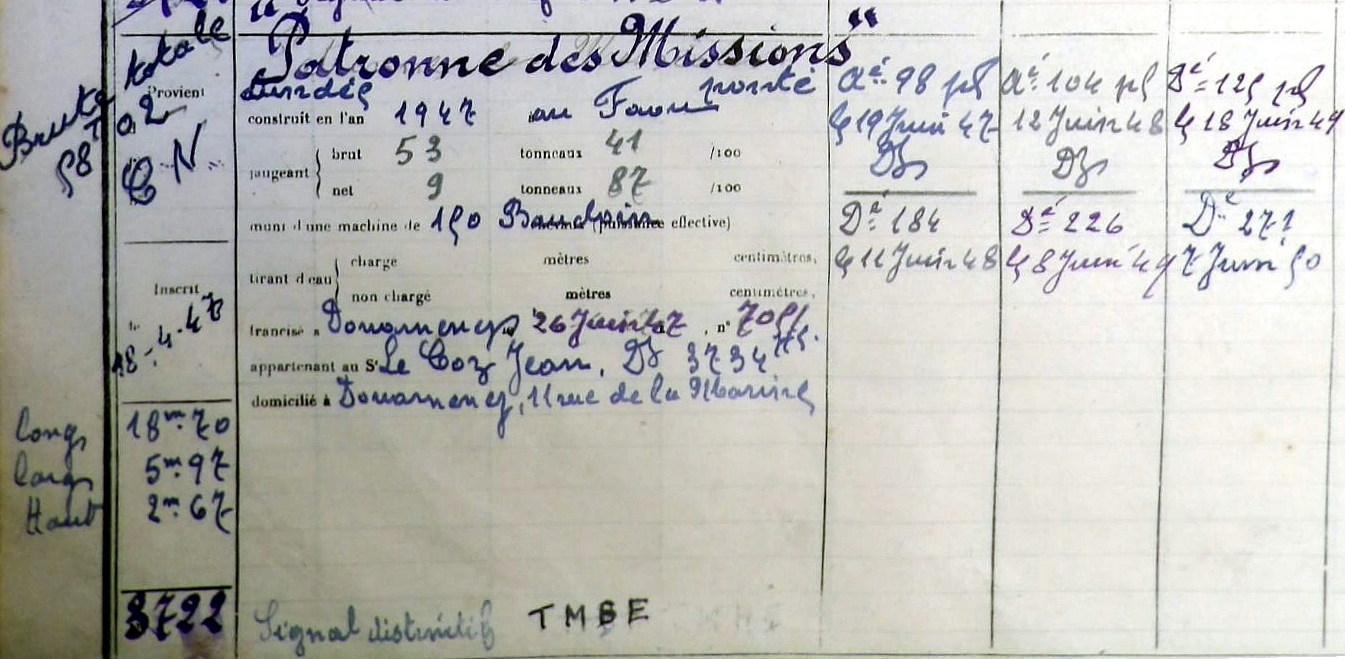 "Patronne des Missions"
Bruta totale
58T 02
Provient
C N.
Dundée ponté
construit en l'an 1947 au Faou
jaugeant brut 53 tonneaux 41 /100
net 9 tonneaux 87 /100
muni d'une machine de 150 Baudouin (puissance effective)
tirant d'eau chargé mètres centimètres,
non chargé mètres centimètres,
Inscrit
le 18-4-47
francisé à Douarnenez le 26 Juin 47, n° 7051
appartenant au Sr Le Coz Jean, DZ 3734
domicilié à Douarnenez, 11 rue de la Marine
long 18m.70
larg 5m.97
Haut 2m.67
3722 Signal distinctif TMBE
Dé 98
le 19 Juin 47
DZ
Dé 184
le 11 Juin 48
Dé 104
12 Juin 48
DZ
Dé 226
le 8 Juin 49
Dé 125
le 18 Juin 49
DZ
Dé 271
7 Juin 50